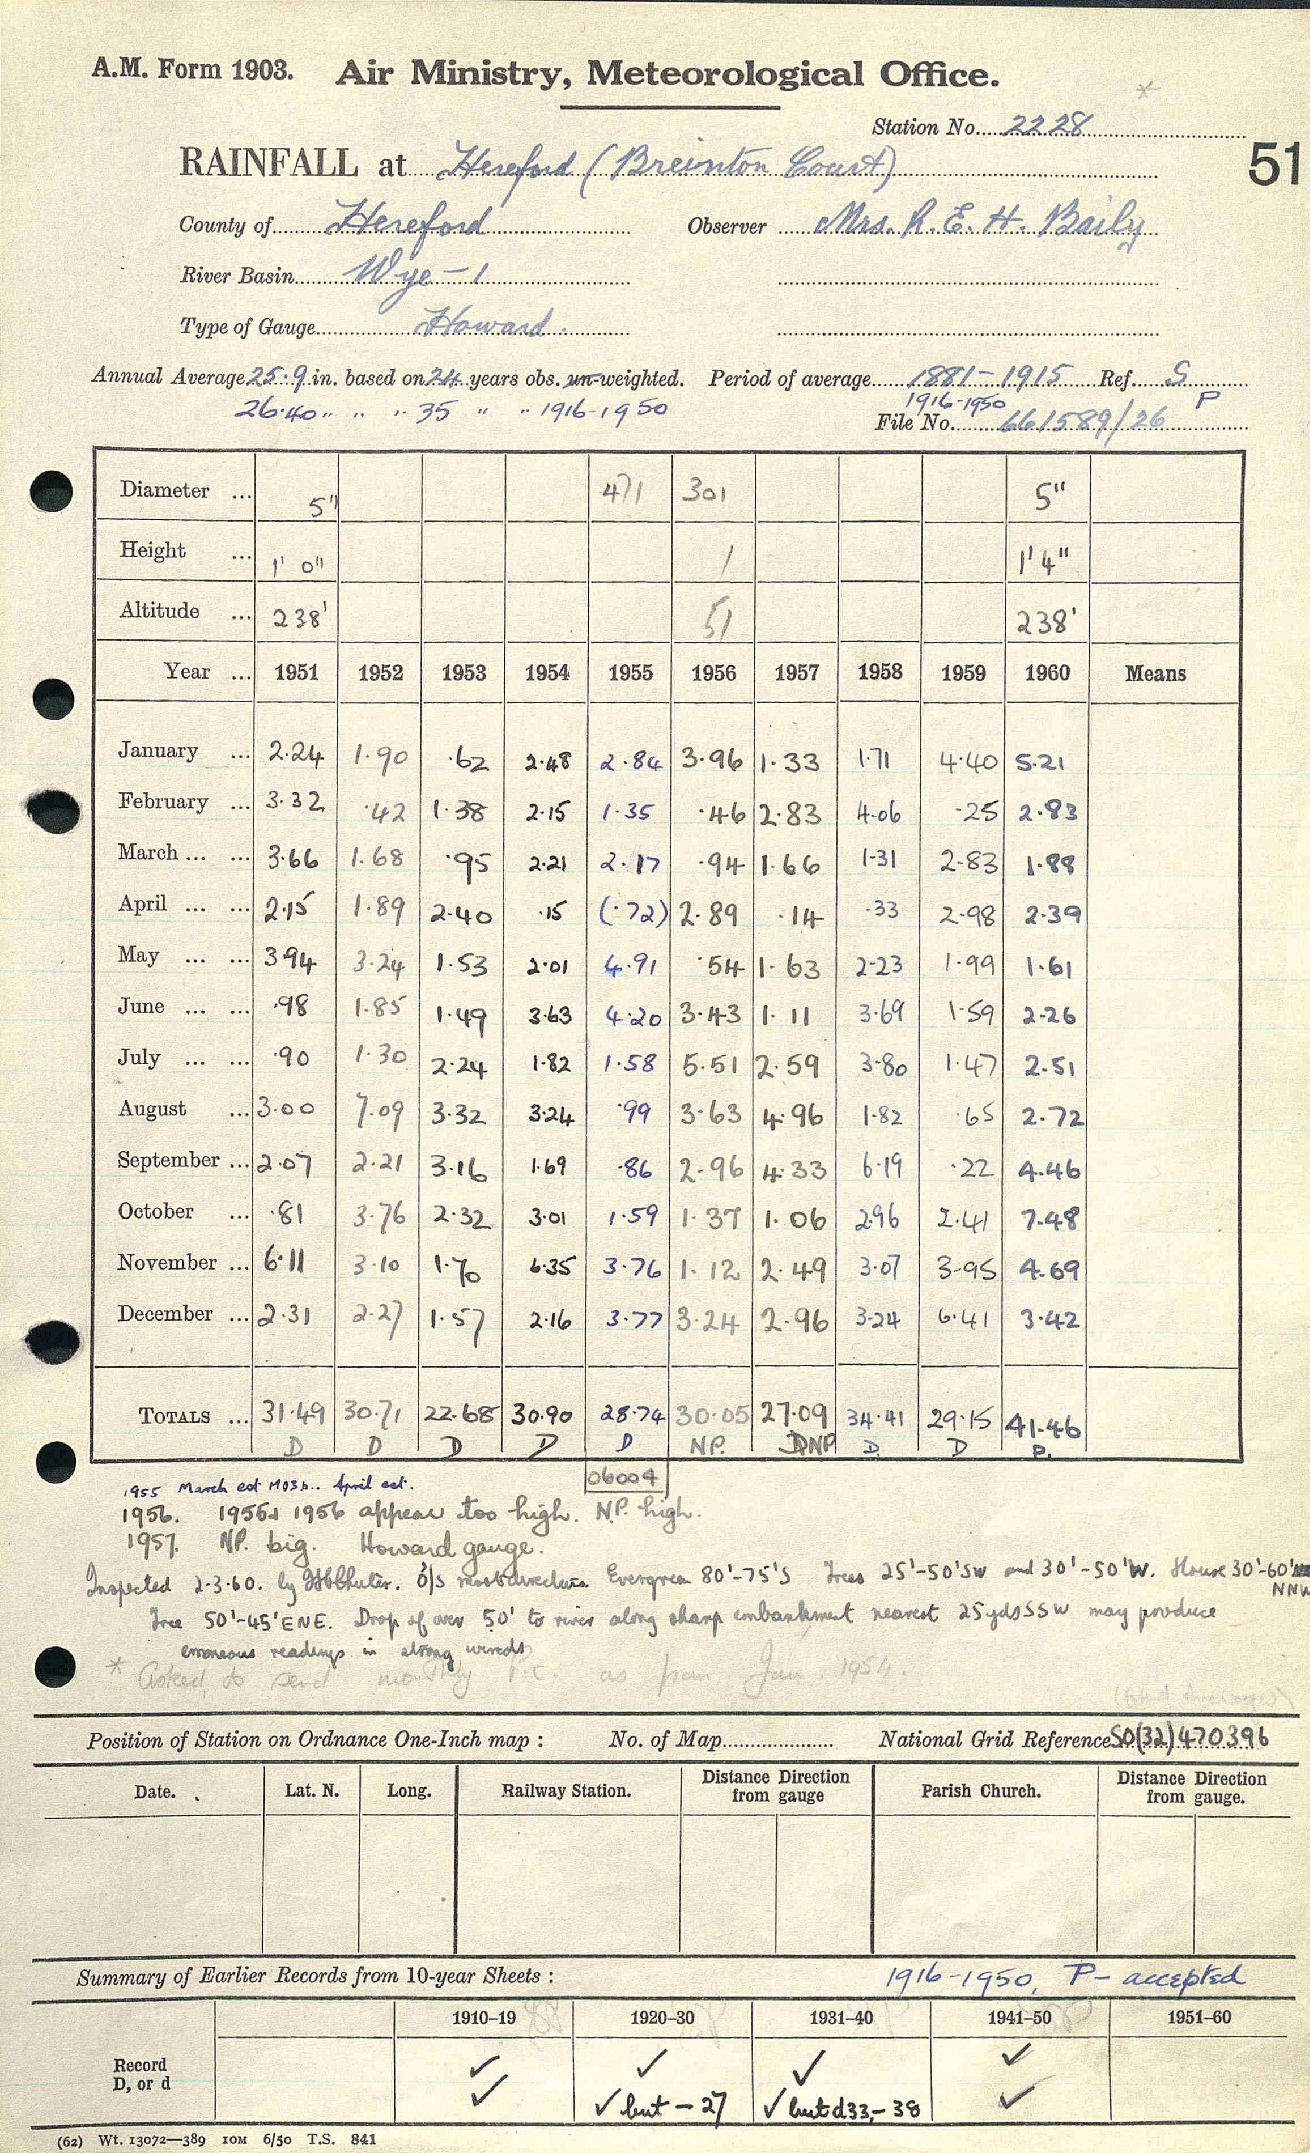 A.M. Form 1903. Air Ministry, Meteorological Office.
*
Station No. 2228
51
RAINFALL at Hereford (Breinton Court)
County of Hereford Observer Mrs. R. E. H. Baily
River Basin Wye - 1
Type of Gauge Howard.
Annual Average 25.9 in. based on 24 years obs. un-weighted. Period of average 1881-1915 Ref. S
26.40 " " " 35 " " 1916-1950 1916-1950 P
File No. 661589/26
Diameter ... 5" 471 301 5"
Height ... 1' 0" 1 1' 4"
Altitude ... 238' 51 238'
Year ... 1951 1952 1953 1954 1955 1956 1957 1958 1959 1960 Means
January ... 2.24 1.90 .62 2.48 2.84 3.96 1.33 1.71 4.40 5.21
February ... 3.32 .42 1.38 2.15 1.35 .46 2.83 4.06 .25 2.83
March ... ... 3.66 1.68 .95 2.21 2.17 .94 1.66 1.31 2.83 1.88
April ... ... 2.15 1.89 2.40 .15 (.72) 2.89 .14 .33 2.98 2.39
May ... ... 3.94 3.24 1.53 2.01 4.91 .54 1.63 2.23 1.99 1.61
June ... ... .98 1.85 1.49 3.63 4.20 3.43 1.11 3.69 1.59 2.26
July ... ... .90 1.30 2.24 1.82 1.58 5.51 2.59 3.80 1.47 2.51
August ... 3.00 7.09 3.32 3.24 .99 3.63 4.96 1.82 .65 2.72
September ... 2.07 2.21 3.16 1.69 .86 2.96 4.33 6.19 .22 4.46
October ... .81 3.76 2.32 3.01 1.59 1.37 1.06 2.96 2.41 7.48
November ... 6.11 3.10 1.70 6.35 3.76 1.12 2.49 3.07 3.95 4.69
December ... 2.31 2.27 1.57 2.16 3.77 3.24 2.96 3.24 6.41 3.42
TOTALS ... 31.49 30.71 22.68 30.90 28.74 30.05 27.09 34.41 29.15 41.46
D D D D D NP. DNP D. D P.
06004
1955 March est MO3b.. April est.
1956. 1955 & 1956 appear too high. NP. high.
1957. NP. big. Howard gauge.
Inspected 2-3-60. by O/S most directions Evergreen 80'-75'S Trees 25'-50'SW and 30'-50'W. House 30'-60'
NNW
Tree 50'-45'ENE. Drop of over 50' to river along sharp embankment nearest 25yds SSW may produce
erroneous readings in strong winds
* Asked to send monthly P.C. as from Jan. 1954.
Position of Station on Ordnance One-Inch map : No. of Map National Grid Reference SO(32)470396
Date. Lat. N. Long. Railway Station. Distance Direction from gauge Parish Church. Distance Direction from gauge.
Summary of Earlier Records from 10-year Sheets : 1916-1950, P - accepted
1910-19 1920-30 1931-40 1941-50 1951-60
Record ✓ ✓ ✓ ✓
D, or d ✓ ✓ but - 27 ✓ but d33,- 38 ✓
(62) Wt. 13072—389 10M 6/50 T.S. 841